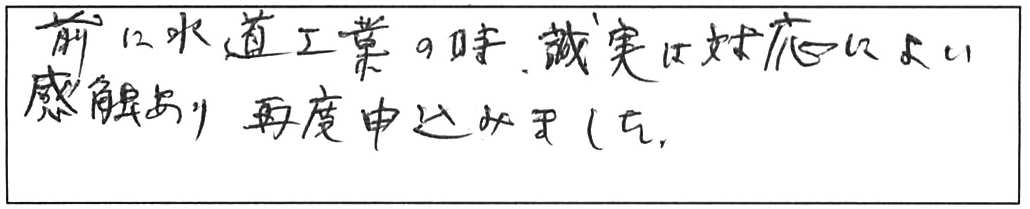 前に水道工業の時、誠実は対応によい
感触あり 再度申込みました。